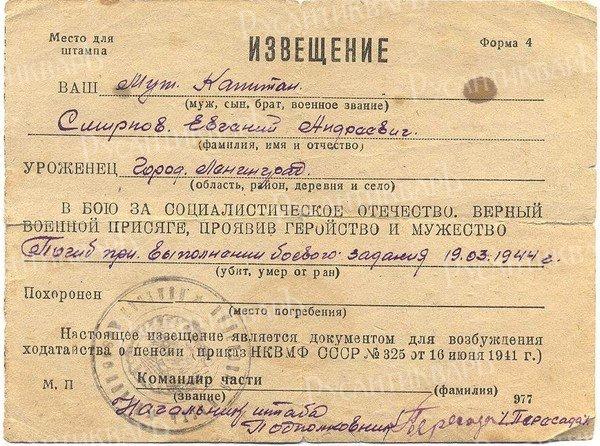 Место для штампа
ИЗВЕЩЕНИЕ
Форма 4
ВАШ Муж. Капитан.
(муж, сын, брат, военное звание)
Смирнов. Евгений Андреевич.
(фамилия, имя и отчество)
УРОЖЕНЕЦ Город. Ленинград.
(область, район, деревня и село)
В БОЮ ЗА СОЦИАЛИСТИЧЕСКОЕ ОТЕЧЕСТВО. ВЕРНЫЙ
ВОЕННОЙ ПРИСЯГЕ, ПРОЯВИВ ГЕРОЙСТВО И МУЖЕСТВО
Погиб при. Выполнении боевого задания 19.03.1944 г.
(убит, умер от ран)
Похоронен
(место погребения)
Настоящее извещение является документом для возбуждения
ходатайства о пенсии приказ НКВМФ СССР №325 от 16 июня 1941 г.)
М. П Командир части
(звание) (фамилия) 977
Начальник штаба
Подполковник (Пересада)
РУСАНТИКВАРЪ